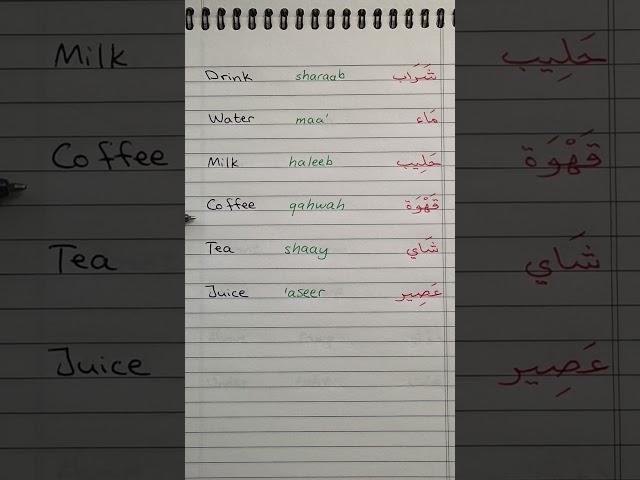 Drink sharaab شَرَاب
Water maa' مَاء
Milk haleeb حَلِيب
Coffee qahwah قَهْوَة
Tea shaay شَاي
Juice 'aseer عَصِير
Milk حَلِيب
Coffee قَهْوَة
Tea شَاي
Juice عَصِير